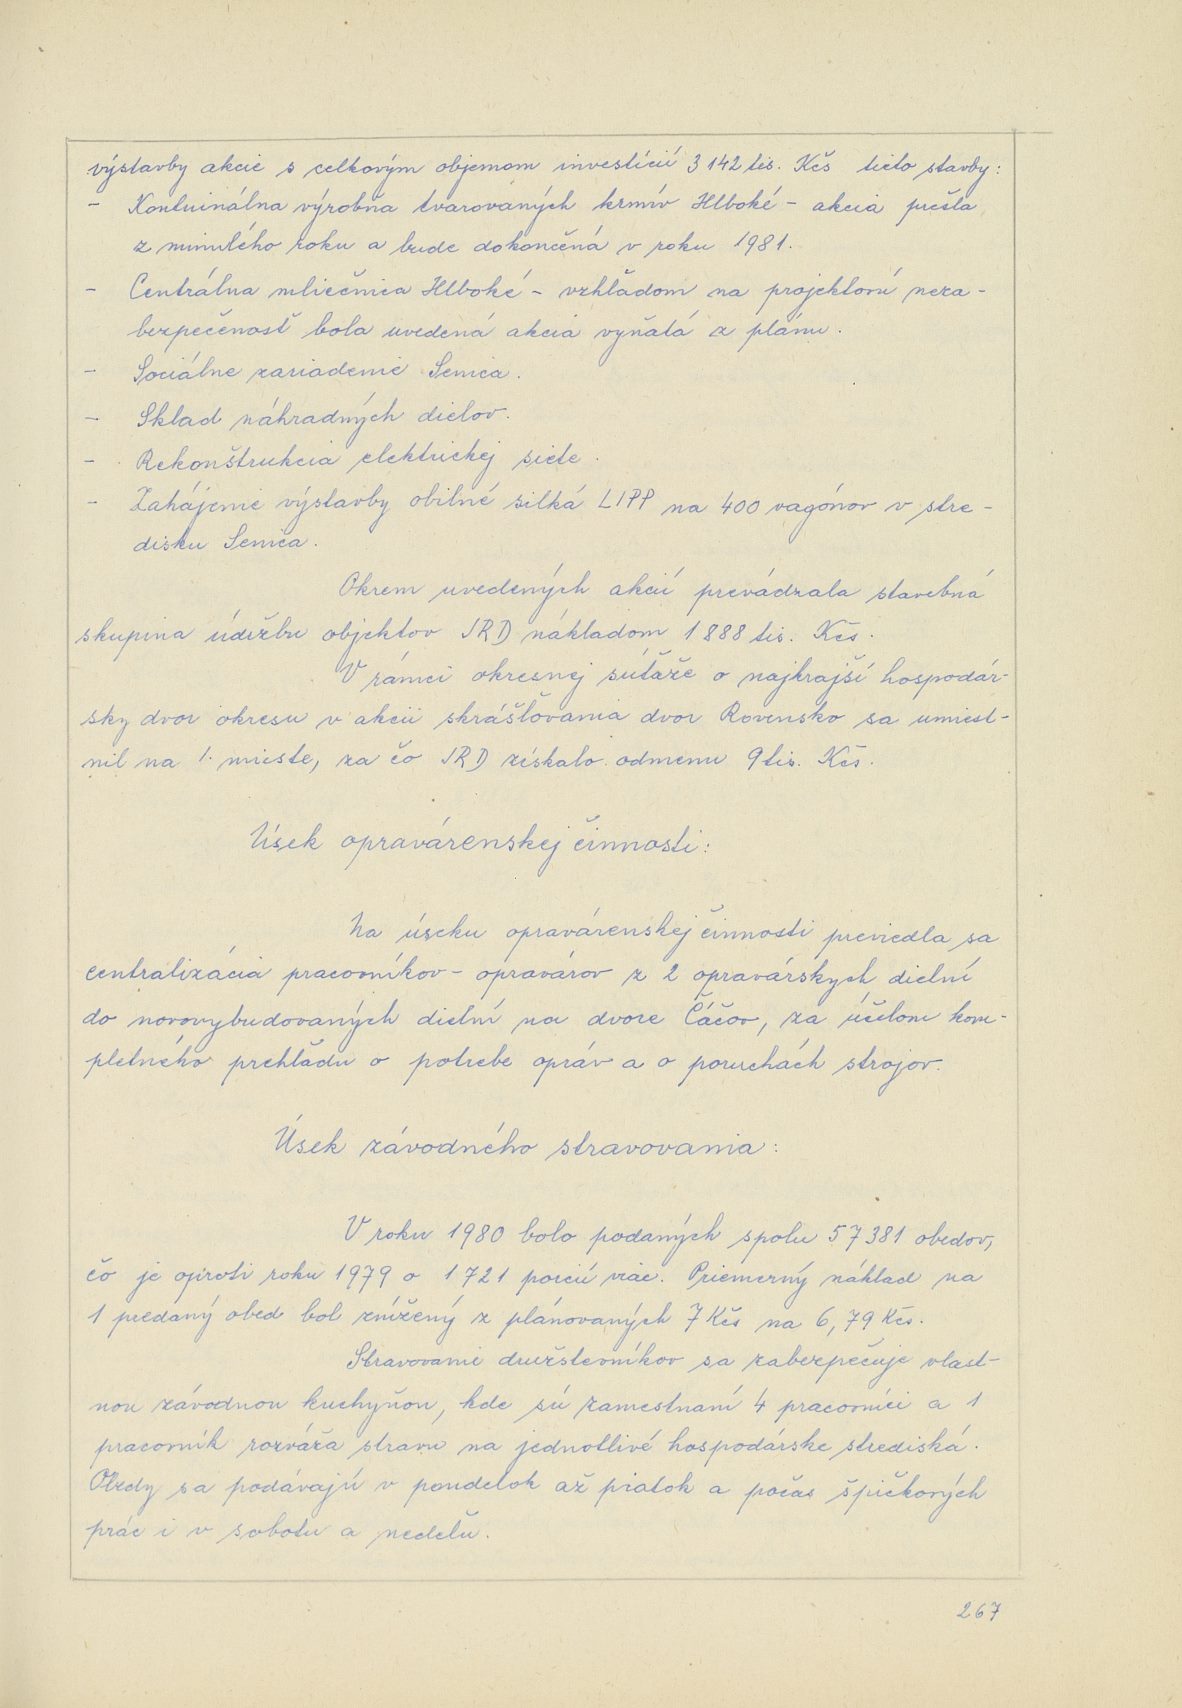 výstavby akcie s celkovým objemom investícií 3 142 tis. Kčs tieto stavby:
- Kontuinálna výrobňa tvarovaných krmív Hlboké - akcia prešla
z minulého roku a bude dokončená v roku 1981.
- Centrálna mliečnica Hlboké - vzhľadom na projektovú neza-
bezpečenosť bola uvedená akcia vyňatá z plánu.
- Sociálne zariadenie Senica.
- Sklad náhradných dielov.
- Rekonštrukcia elektrickej siete.
- Zahájenie výstavby obilné silká LIPP na 400 vagónov v stre-
disku Senica.
Okrem uvedených akcií prevádzala stavebná
skupina údržbu objektov JRD nákladom 1 888 tis. Kčs.
V rámci okresnej súťaže o najkrajší hospodár-
sky dvor okresu v akcii skrášľovania dvor Rovensko sa umiest-
nil na 1. mieste, za čo JRD získalo odmenu 9 tis. Kčs.
Úsek opravárenskej činnosti:
Na úseku opravárenskej činnosti previedla sa
centralizácia pracovníkov - opravárov z 2 opravárskych dielní
do novovybudovaných dielní na dvore Čáčov, za účelom kom-
pletného prehľadu o potrebe opráv a o poruchách strojov.
Úsek závodného stravovania:
V roku 1980 bolo podaných spolu 57 381 obedov,
čo je oproti roku 1979 o 1 721 porcií viac. Priemerný náklad na
1 predaný obed bol znížený z plánovaných 7 Kčs na 6,79 Kčs.
Stravovanie družstevníkov sa zabezpečuje vlast-
nou závodnou kuchyňou, kde sú zamestnaní 4 pracovníci a 1
pracovník rozváža stravu na jednotlivé hospodárske strediská.
Obedy sa podávajú v pondelok až piatok a počas špičkových
prác i v sobotu a nedeľu.
267